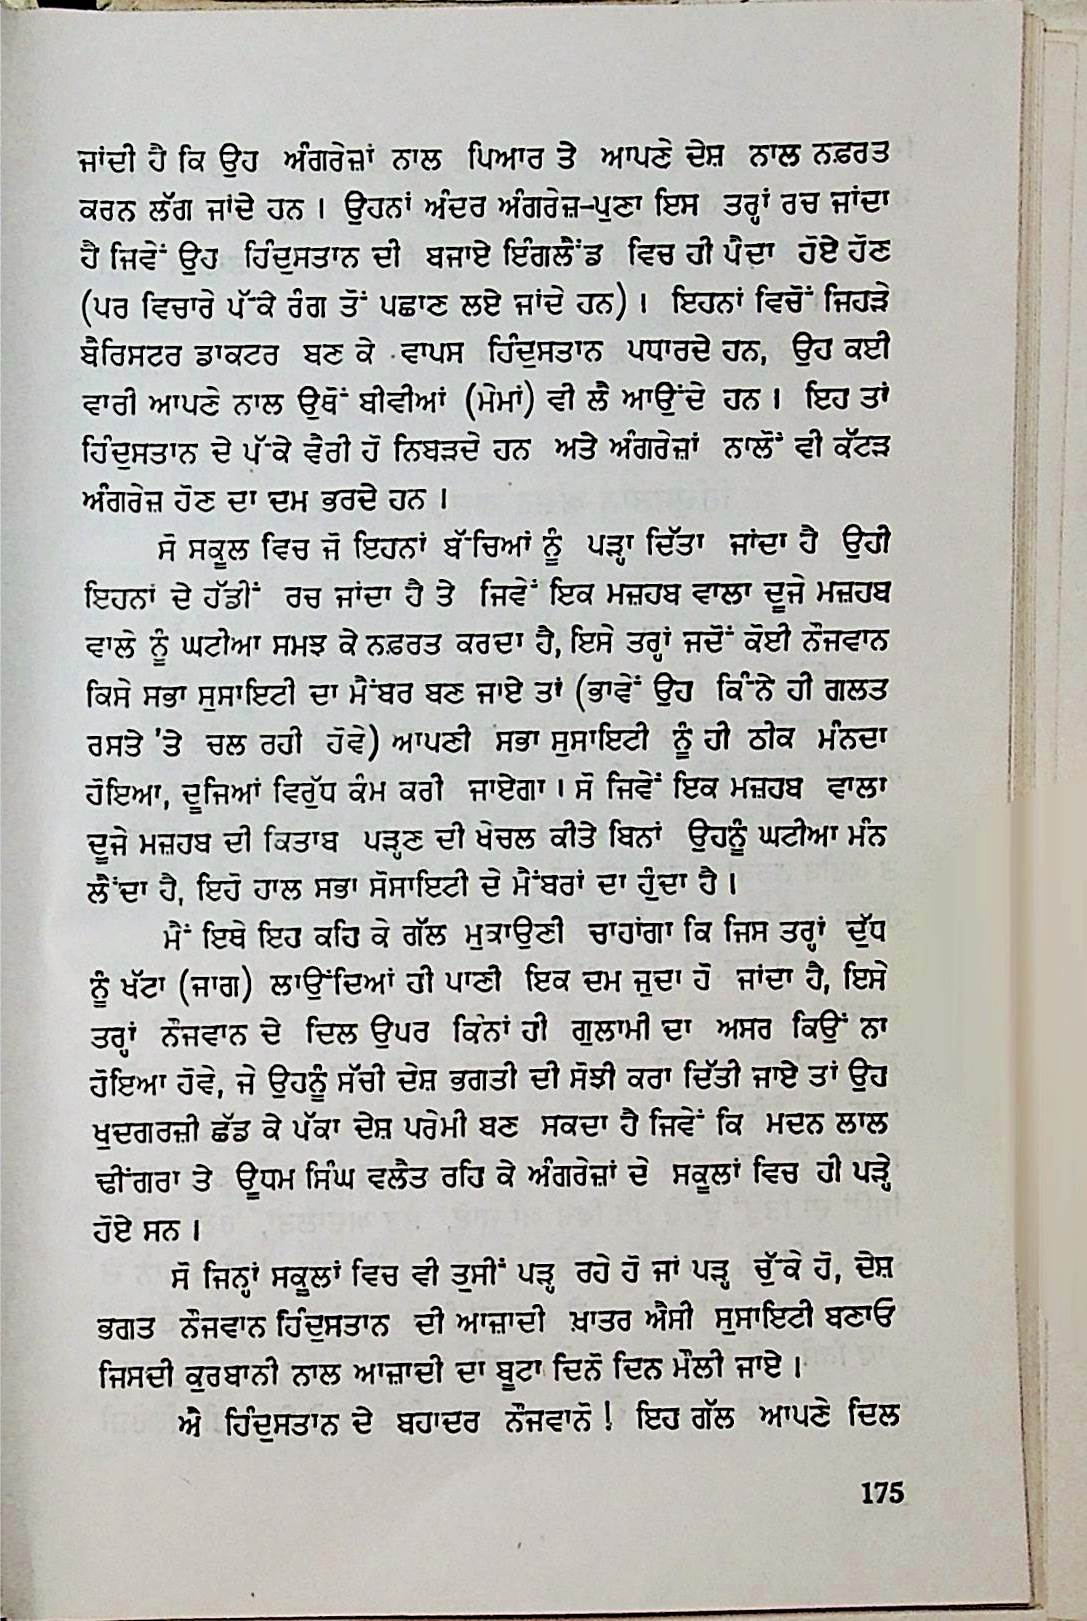 ਜਾਂਦੀ ਹੈ ਕਿ ਉਹ ਅੰਗਰੇਜ਼ਾਂ ਨਾਲ ਪਿਆਰ ਤੇ ਆਪਣੇ ਦੇਸ਼ ਨਾਲ ਨਫ਼ਰਤ
ਕਰਨ ਲੱਗ ਜਾਂਦੇ ਹਨ । ਉਹਨਾਂ ਅੰਦਰ ਅੰਗਰੇਜ਼-ਪੁਣਾ ਇਸ ਤਰ੍ਹਾਂ ਰਚ ਜਾਂਦਾ
ਹੈ ਜਿਵੇਂ ਉਹ ਹਿੰਦੁਸਤਾਨ ਦੀ ਬਜਾਏ ਇੰਗਲੈਂਡ ਵਿਚ ਹੀ ਪੈਦਾ ਹੋਏ ਹੋਣ
(ਪਰ ਵਿਚਾਰੇ ਪੱਕੇ ਰੰਗ ਤੋਂ ਪਛਾਣ ਲਏ ਜਾਂਦੇ ਹਨ) । ਇਹਨਾਂ ਵਿਚੋਂ ਜਿਹੜੇ
ਬੈਰਿਸਟਰ ਡਾਕਟਰ ਬਣ ਕੇ ਵਾਪਸ ਹਿੰਦੁਸਤਾਨ ਪਧਾਰਦੇ ਹਨ, ਉਹ ਕਈ
ਵਾਰੀ ਆਪਣੇ ਨਾਲ ਉਥੋਂ ਬੀਵੀਆਂ (ਮੇਮਾਂ) ਵੀ ਲੈ ਆਉਂਦੇ ਹਨ । ਇਹ ਤਾਂ
ਹਿੰਦੁਸਤਾਨ ਦੇ ਪੱਕੇ ਵੈਰੀ ਹੋ ਨਿਬੜਦੇ ਹਨ ਅਤੇ ਅੰਗਰੇਜ਼ਾਂ ਨਾਲੋਂ ਵੀ ਕੱਟੜ
ਅੰਗਰੇਜ਼ ਹੋਣ ਦਾ ਦਮ ਭਰਦੇ ਹਨ ।
ਸੋ ਸਕੂਲ ਵਿਚ ਜੋ ਇਹਨਾਂ ਬੱਚਿਆਂ ਨੂੰ ਪੜ੍ਹਾ ਦਿੱਤਾ ਜਾਂਦਾ ਹੈ ਉਹੀ
ਇਹਨਾਂ ਦੇ ਹੱਡੀਂ ਰਚ ਜਾਂਦਾ ਹੈ ਤੇ ਜਿਵੇਂ ਇਕ ਮਜ਼ਹਬ ਵਾਲਾ ਦੂਜੇ ਮਜ਼ਹਬ
ਵਾਲੇ ਨੂੰ ਘਟੀਆ ਸਮਝ ਕੇ ਨਫ਼ਰਤ ਕਰਦਾ ਹੈ, ਇਸੇ ਤਰ੍ਹਾਂ ਜਦੋਂ ਕੋਈ ਨੌਜਵਾਨ
ਕਿਸੇ ਸਭਾ ਸੁਸਾਇਟੀ ਦਾ ਮੈਂਬਰ ਬਣ ਜਾਏ ਤਾਂ (ਭਾਵੇਂ ਉਹ ਕਿੰਨੇ ਹੀ ਗਲਤ
ਰਸਤੇ 'ਤੇ ਚਲ ਰਹੀ ਹੋਵੇ) ਆਪਣੀ ਸਭਾ ਸੁਸਾਇਟੀ ਨੂੰ ਹੀ ਠੀਕ ਮੰਨਦਾ
ਹੋਇਆ, ਦੂਜਿਆਂ ਵਿਰੁੱਧ ਕੰਮ ਕਰੀ ਜਾਏਗਾ । ਸੋ ਜਿਵੇਂ ਇਕ ਮਜ਼ਹਬ ਵਾਲਾ
ਦੂਜੇ ਮਜ਼ਹਬ ਦੀ ਕਿਤਾਬ ਪੜ੍ਹਣ ਦੀ ਖੇਚਲ ਕੀਤੇ ਬਿਨਾਂ ਉਹਨੂੰ ਘਟੀਆ ਮੰਨ
ਲੈਂਦਾ ਹੈ, ਇਹੋ ਹਾਲ ਸਭਾ ਸੋਸਾਇਟੀ ਦੇ ਮੈਂਬਰਾਂ ਦਾ ਹੁੰਦਾ ਹੈ ।
ਮੈਂ ਇਥੇ ਇਹ ਕਹਿ ਕੇ ਗੱਲ ਮੁਕਾਉਣੀ ਚਾਹਾਂਗਾ ਕਿ ਜਿਸ ਤਰ੍ਹਾਂ ਦੁੱਧ
ਨੂੰ ਖੱਟਾ (ਜਾਗ) ਲਾਉਂਦਿਆਂ ਹੀ ਪਾਣੀ ਇਕ ਦਮ ਜੁਦਾ ਹੋ ਜਾਂਦਾ ਹੈ, ਇਸੇ
ਤਰ੍ਹਾਂ ਨੌਜਵਾਨ ਦੇ ਦਿਲ ਉਪਰ ਕਿੰਨਾਂ ਹੀ ਗੁਲਾਮੀ ਦਾ ਅਸਰ ਕਿਉਂ ਨਾ
ਹੋਇਆ ਹੋਵੇ, ਜੇ ਉਹਨੂੰ ਸੱਚੀ ਦੇਸ਼ ਭਗਤੀ ਦੀ ਸੋਝੀ ਕਰਾ ਦਿੱਤੀ ਜਾਏ ਤਾਂ ਉਹ
ਖੁਦਗਰਜ਼ੀ ਛੱਡ ਕੇ ਪੱਕਾ ਦੇਸ਼ ਪਰੇਮੀ ਬਣ ਸਕਦਾ ਹੈ ਜਿਵੇਂ ਕਿ ਮਦਨ ਲਾਲ
ਢੀਂਗਰਾ ਤੇ ਊਧਮ ਸਿੰਘ ਵਲੈਤ ਰਹਿ ਕੇ ਅੰਗਰੇਜ਼ਾਂ ਦੇ ਸਕੂਲਾਂ ਵਿਚ ਹੀ ਪੜ੍ਹੇ
ਹੋਏ ਸਨ ।
ਸੋ ਜਿਨ੍ਹਾਂ ਸਕੂਲਾਂ ਵਿਚ ਵੀ ਤੁਸੀਂ ਪੜ੍ਹ ਰਹੇ ਹੋ ਜਾਂ ਪੜ੍ਹ ਚੁੱਕੇ ਹੋ, ਦੇਸ਼
ਭਗਤ ਨੌਜਵਾਨ ਹਿੰਦੁਸਤਾਨ ਦੀ ਆਜ਼ਾਦੀ ਖ਼ਾਤਰ ਐਸੀ ਸੁਸਾਇਟੀ ਬਣਾਓ
ਜਿਸਦੀ ਕੁਰਬਾਨੀ ਨਾਲ ਆਜ਼ਾਦੀ ਦਾ ਬੂਟਾ ਦਿਨੋ ਦਿਨ ਮੌਲੀ ਜਾਏ ।
ਐ ਹਿੰਦੁਸਤਾਨ ਦੇ ਬਹਾਦਰ ਨੌਜਵਾਨੋ ! ਇਹ ਗੱਲ ਆਪਣੇ ਦਿਲ
175